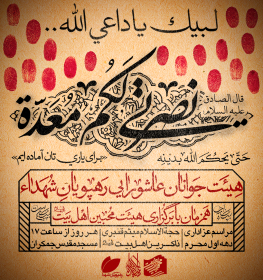 لبيك ياداعي الله..
قال الصادق
عليه السلام
نصرتي لكم معدة
حتى يحكم الله بدينه
«برای یاری تان آماده ایم»
هیئت جوانان عاشورایی رهپویان شهداء
همزمان با برگزاری هیئت محبین اهل بیت
مراسم عزاداری
دهه اول محرم
حجة الاسلام میثم قنبری
ذاکرین اهل بیت
هر روز از ساعت ۱۷
مسجد مقدس جمکران